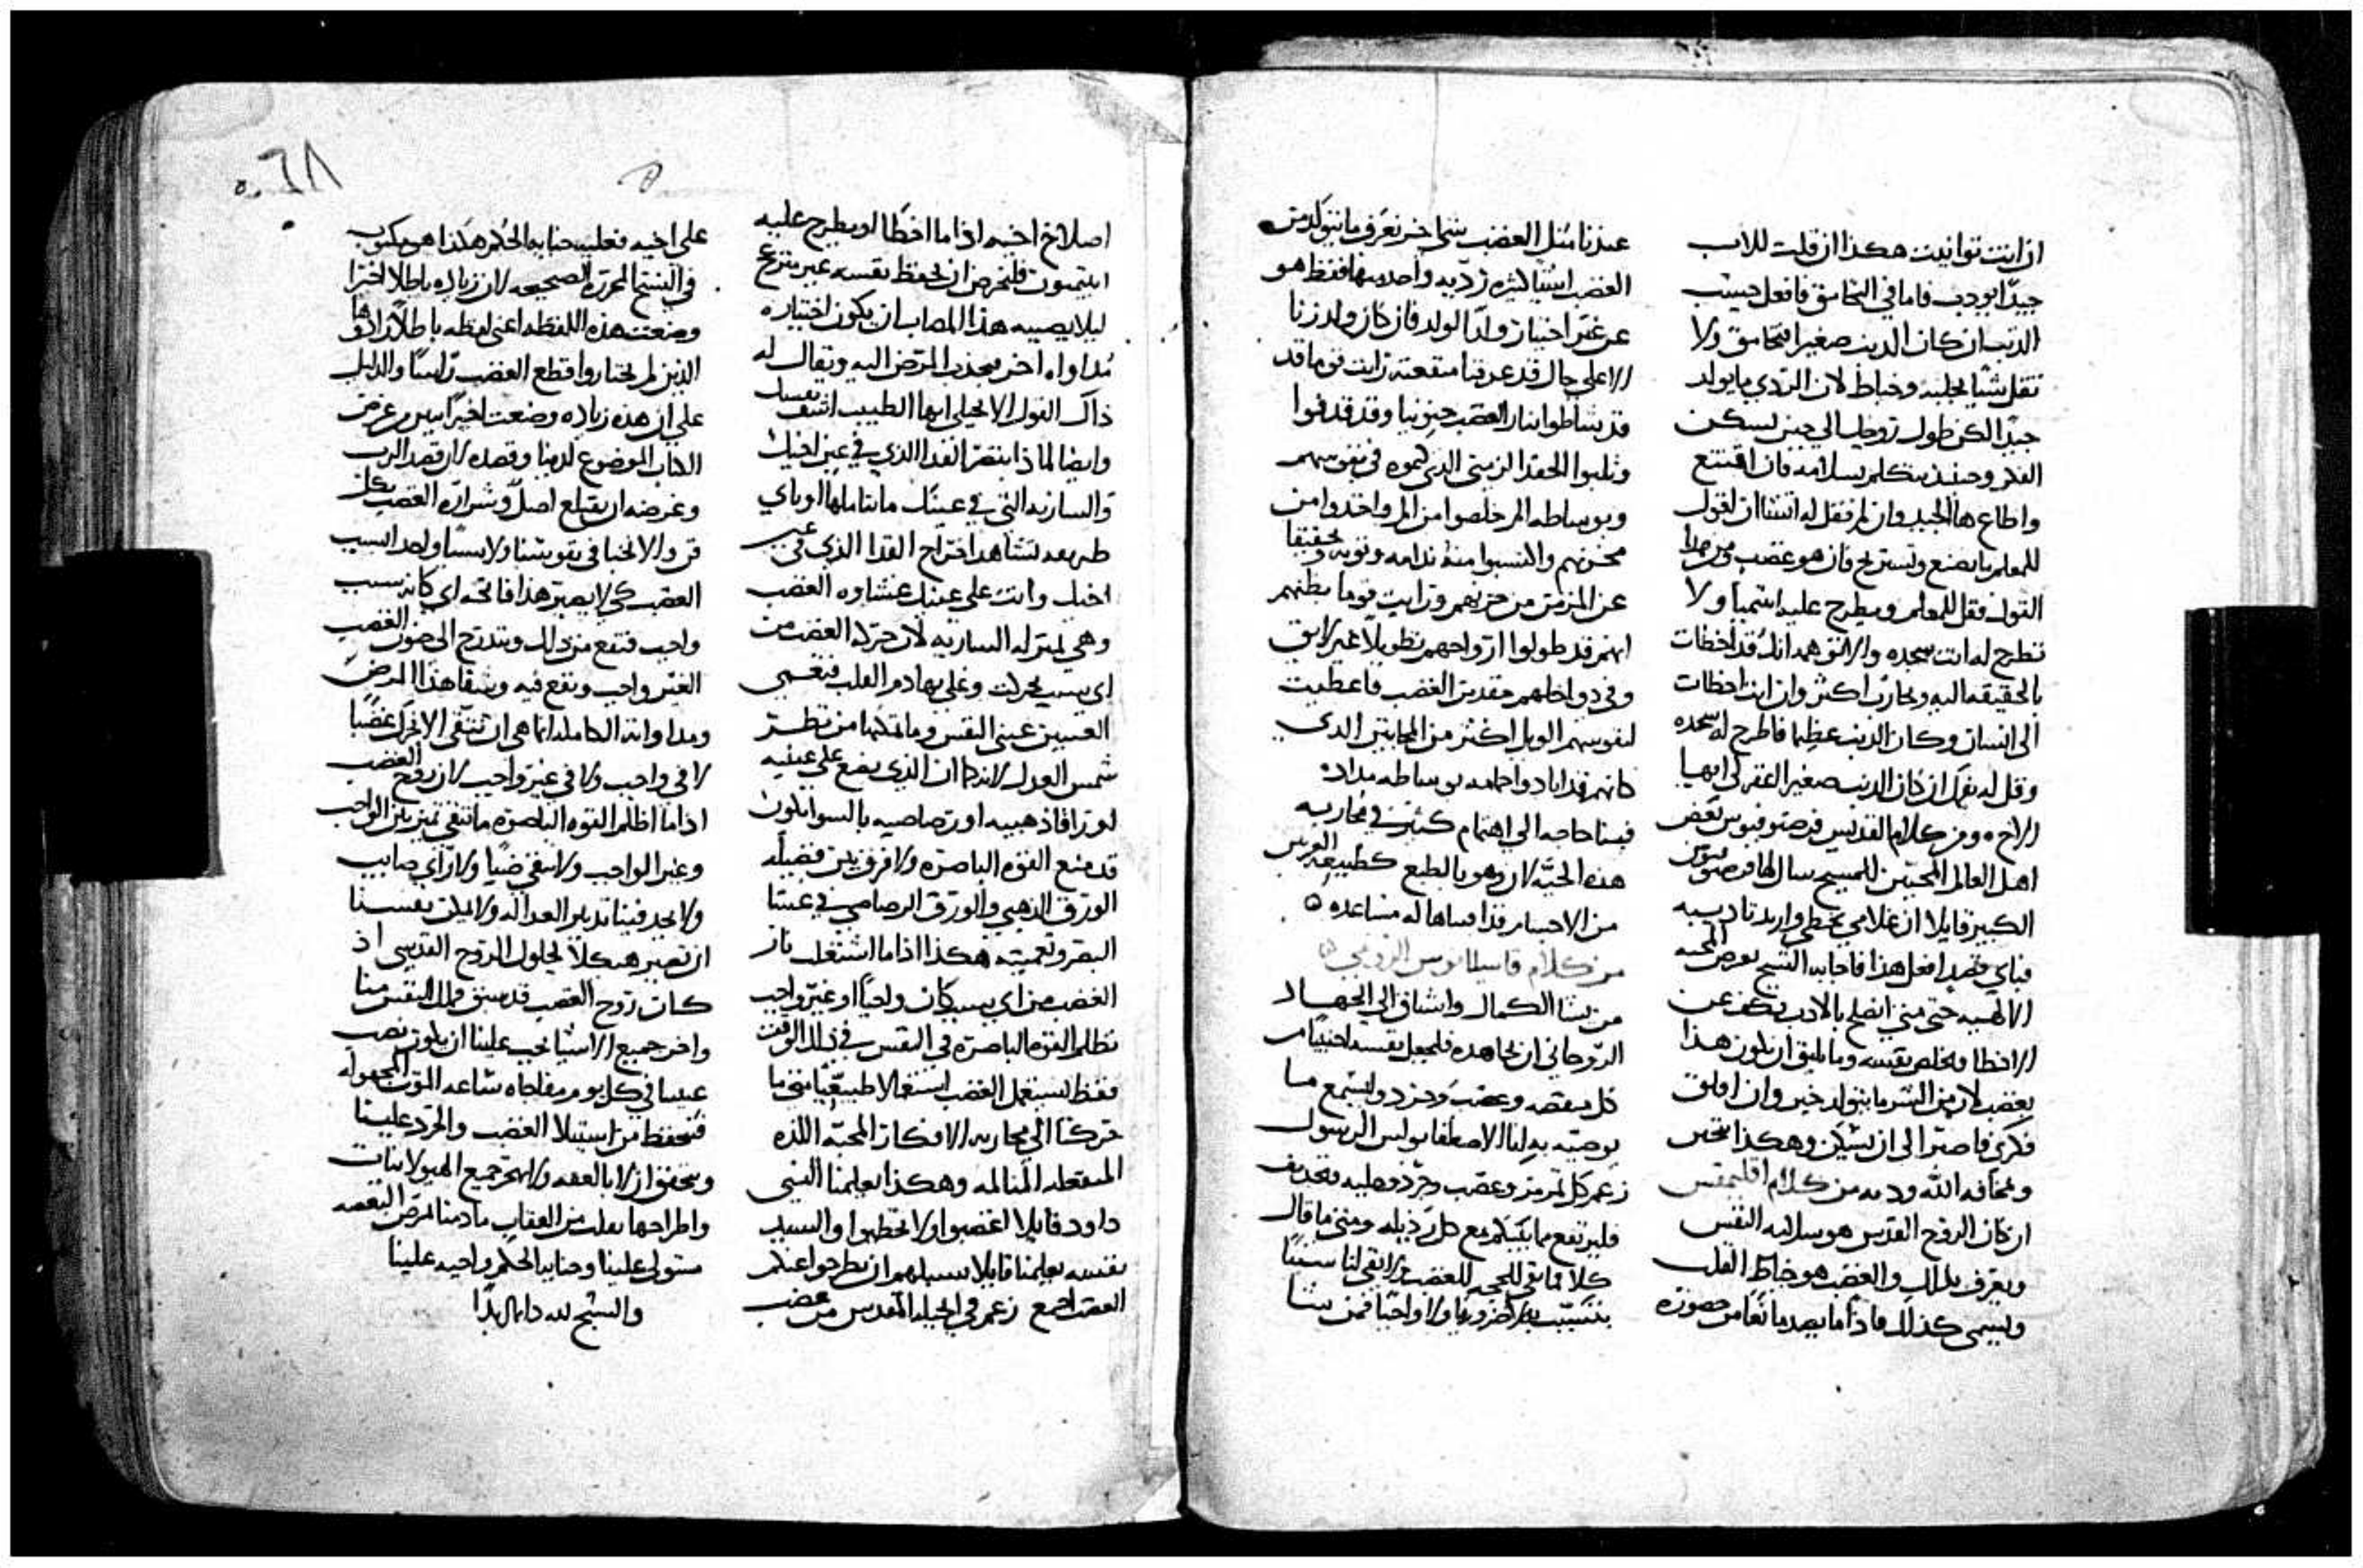 ان انت توانيت هكذا ان قلت للاب
جيدًا يودب فاما في التحامق فافعل حسب
الذنب ان كان الذنب صغيرا فتحامق ولا
تقل شيا بجلبه وخباط لان الردي ما يولد
جيدًا لكن طول روحك الي حين يسكن
الفكر وحينيذ تتكلم بسلامه فان اقتنع
واطاع ها الجيد وان لم فقل له اننا ان نقول
للمعلم ما يصنع ونستريح فان هو غضب من هذا
القول فقل للمعلم ويطرح عليه ابتيميا ولا
تطرح له انت سجده والا انت انك قد اخطات
بالحقيقه اليه ويحاربك اكثر وان انت اخطات
الي انسان وكان الذنب عظيما فاطرح له سجده
وقل له بفمك ان كان الذنب صغيرا اغفر لي ايها
الاخ ومن كلام القديس برصنوفيوس بعض
اهل العالم المحبين للمسيح سال لهذا برصنوفيوس
الكبير قايلا ان غلامي يخطي واريد تاديبه
فباي قصد افعل هذا فاجابه الشيخ بغرض المحبه
الالهيه حتي متي انصلح بالادب يكف عن
الاخطا ويخلص نفسه وما يليق ان يكون هذا
بغضب لان من الشر ما يتولد خير وان اقلق
فكرك فاصبر الي ان يسكن وهكذا بتحنن
ومخافه الله ودبه من كلام اقليمقس
ان كان الروح القدس هو سلامه النفس
ويعرف بذلك والغضب هو خباط القلب
ويسمي كذلك فاذا ما يصد مانعا من حضوره
عندنا مثل الغضب شي اخر نعرف ما يتولد من
الغضب اشيا كثيره رديه واحد منها فقط هو
عن غير اختيار ولدًا لولد فان كان ولد زنا
الا علي حال قد عرفنا منفعته رايت قوما قد
قد شاطوا بنار الغضب جنونيا وقد قدفوا
وثلبوا الحقد الزمني الذي كتموه في نفوسهم
وبوساطه الم خلصوا من الم واخذوا من
محزنهم واكتسبوا منه ندامه وتوبه وتحقيقا
عن المزمن من حزنهم ورايت قوما يظن بهم
انهم قد طولوا ارواحهم تطويلا غير لايق
وفي دواخلهم مقدين الغضب فاعطيت
لنفوسهم الويل اكثر من المجانين الذي
كانهم قد ابادوا حمامه بوساطه مداده
فبنا حاجه الي اهتمام كثير في محاربه
هذه الحيه لان هو بالطبع كطبيعه الفرس
من الاجسام قدامها له مساعده
من كلام قاسيانوس الرومي
من يشا الكمال واشتاق الي الجهاد
الروحاني ان يجاهده فليجعل نفسه اجنبيًا من
كل منقصه وغضب وحرد وليستمع ما
يوصيه به انا الاصطفا بولس الرسول
زعم كل تمرمر وغضب وحرد وصليه وتجديف
فليرتفع ما بينكم مع كل رذيله ومتي ما قال
كلا فما بقي للحجه للغضب ولا بقي لنا سببًا
نتسبب به لا ضروريا ولا واجبًا فمن يشا
اصلاح اخيه اذا ما اخطا او يطرح عليه
ابيتيمون فليحرص ان يحفظ نفسه غير منزعج
ليلا يصيبه هذا المصاب ان يكون اختياره
مداواه اخر يجذب المرض اليه ويقال له
ذاك القول الانجيلي ايها الطبيب اشف نفسك
وايضا لماذا تبصر القذا الذي في عين اخيك
والساريه التي في عينك ما تتاملها او باي
طريقه تشاهد اخراج القذا الذي في عين
اخيك وانت علي عينك غشاوه الغضب
وهي بمنزله الساريه لان حركه الغضب من
اي سبب تحركت وغلي بها دم القلب فتعمي
العينين عيني النفس وما تمكنها من نظر
شمس العدل لانه كما ان الذي يضع علي عينيه
لوزا فاذ ذهبيه او رصاصيه بالسوا يكون
قد منع القوه الباصره ولا فرق بين فضيله
الورق الذهبي والورق الرصاصي في غشا
البصر وتعميته هكذا اذا ما اشتعل نار
الغضب من اي سبب كان واجبًا او غير واجب
تظلم القوه الباصره في النفس في ذلك الوقت
فقط نستعمل الغضب استعمالا طبيعيًا متي ما
حركنا الي محاربه الافكار المحبه اللذه
المنفعله المتالمه وهكذا يعلمنا النبي
داود قايلا اغضبوا ولا تخطيوا والسيد
نفسه يعلمنا قايلا سبيلهم ان يطرحوا عنكم
الغضب اجمع زعم في انجيله المقدس من غضب
٦٨
علي اخيه فعليه جنايه الحكم هكذا هو مكتوب
في النسخ المحرره الصحيحه لان زياده باطلا اخيرا
وضعت هذه اللفظه اعني لفظه باطلًا زادوها
الذين لم يختاروا قطع الغضب رأسًا والدليل
علي ان هذه زياده وضعت اخيرًا يبين من غرض
الكتاب الموضوع لدينا وقصده لان قصد الرب
وغرضه ان يقتلع اصل وشراره الغضب بكل
فن والا نخبا في نفوسنا ولا سببًا واحد السبب
الغضب كي لا يصير هذا فاتحه اي كانه سبب
واجب فنقع من ذلك ونتدرج الي جنون الغضب
الغير واجب ونقع فيه وشفا هذا المرض
ومداواته الكامله انما هي ان نتقي الا نتحرك غضبًا
لا في واجب ولا في غير واجب لان روح الغضب
اذا ما اظلم القوه الباصره ما تبقي تميز بين الواجب
وغير الواجب ولا يبقي ضيًا ولا راي صايب
ولا يجد فينا تدبير العداله ولا يمكن نفسنا
ان تصير هيكلًا لحلول الروح القدسي اذ
كان روح الغضب قد سبق وملك النفس منا
واخر جميع الاشيا يجب علينا ان يكون نصب
عينينا في كل يوم مفاجاه ساعه الموت المجهوله
فنحفظ من استيلا الغضب والحرد علينا
ونتحقق ان لا بالعفه ولا بهجر جميع الهيولانيات
واطراحها نفلت من العقاب ما دمنا لمرض النقمه
مستولي علينا وجنايه الحكم واجبه علينا
والسبح لله دايما ابدًا